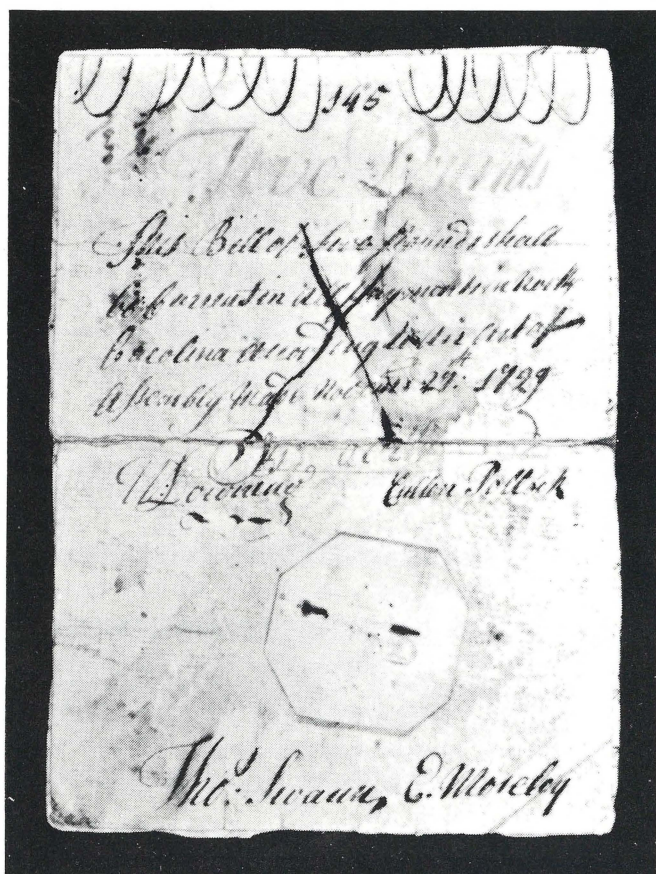 545
Five Pounds
This Bill of five Pounds shall
be Currant in all Payments in North
Carolina according to an Act of
Assembly Made Novemr 27th: 1729
WDowning Cullen Pollock
Tho: Swann, E. Moseley